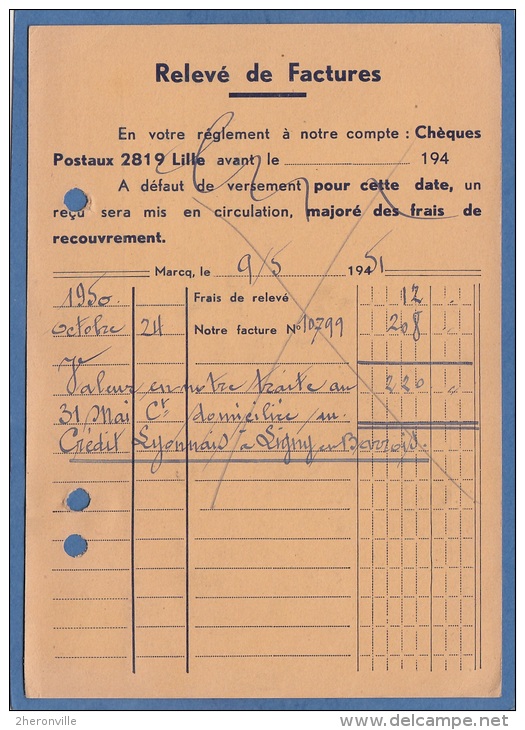 Relevé de Factures
En votre réglement à notre compte : Chèques
Postaux 2819 Lille avant le 194
A défaut de versement pour cette date, un
reçu sera mis en circulation, majoré des frais de
recouvrement.
Marcq, le 9/5 194 51
1950. Frais de relevé 12 "
Octobre 24 Notre facture N° 10799 208 "
Valeur en notre traite au 220 "
31 Mai Ct domiciliée
Crédit Lyonnais à Ligny en Barrois.
2heronville
delcampe.net